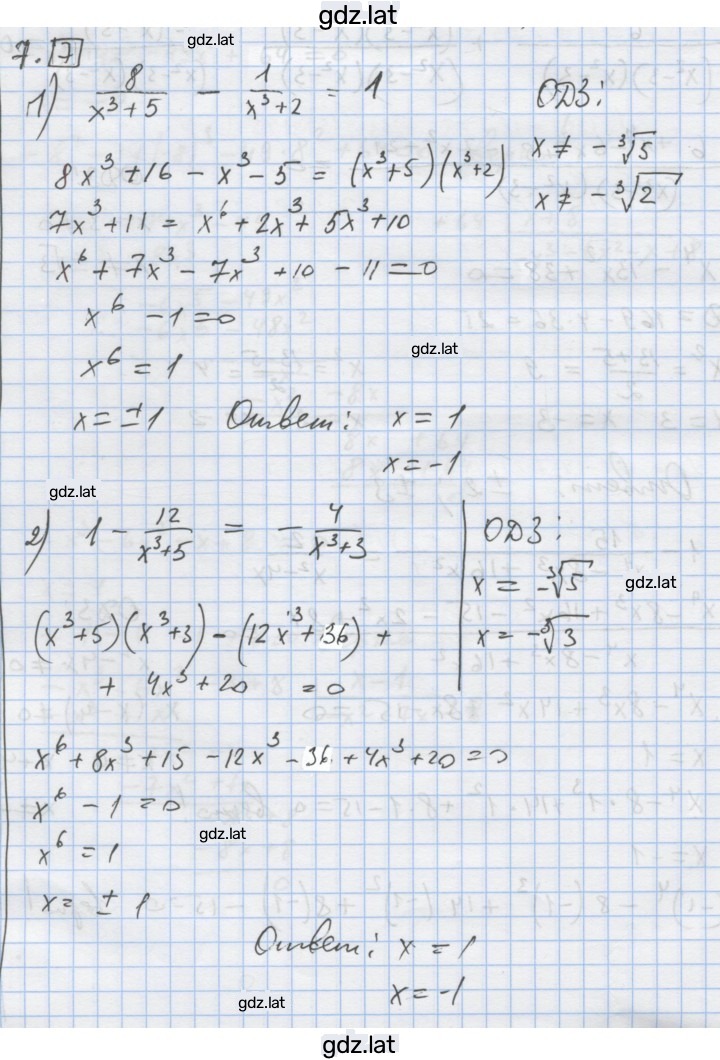 gdz.lat
gdz.lat
7. 7
1) 8/(x³+5) − 1/(x³+2) = 1
ОДЗ:
x ≠ −∛5
x ≠ −∛2
8x³ + 16 − x³ − 5 = (x³+5)(x³+2)
7x³ + 11 = x⁶ + 2x³ + 5x³ + 10
x⁶ + 7x³ − 7x³ + 10 − 11 = 0
x⁶ − 1 = 0
gdz.lat
x⁶ = 1
x = ± 1 Ответ: x = 1
x = −1
gdz.lat
2) 1 − 12/(x³+5) = − 4/(x³+3)
ОДЗ:
x = −∛5
gdz.lat
x = −∛3
(x³+5)(x³+3) − (12x³+36) +
+ 4x³ + 20 = 0
x⁶ + 8x³ + 15 − 12x³ − 36 + 4x³ + 20 = 0
x⁶ − 1 = 0
gdz.lat
x⁶ = 1
x = ± 1
Ответ: x = 1
x = −1
gdz.lat
gdz.lat